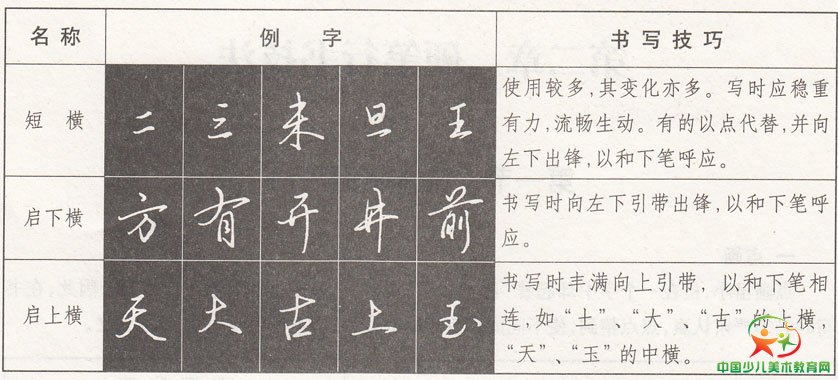 名称 例 字 书写技巧
短 横 二 三 未 旦 王
使用较多,其变化亦多。写时应稳重
有力,流畅生动。有的以点代替,并向
左下出锋,以和下笔呼应。
启下横 方 有 开 井 前
书写时向左下引带出锋,以和下笔呼
应。
启上横 天 大 古 土 玉
书写时丰满向上引带，以和下笔相
连,如“土”、“大”、“古”的上横,
“天”、“玉”的中横。
中国少儿美术教育网